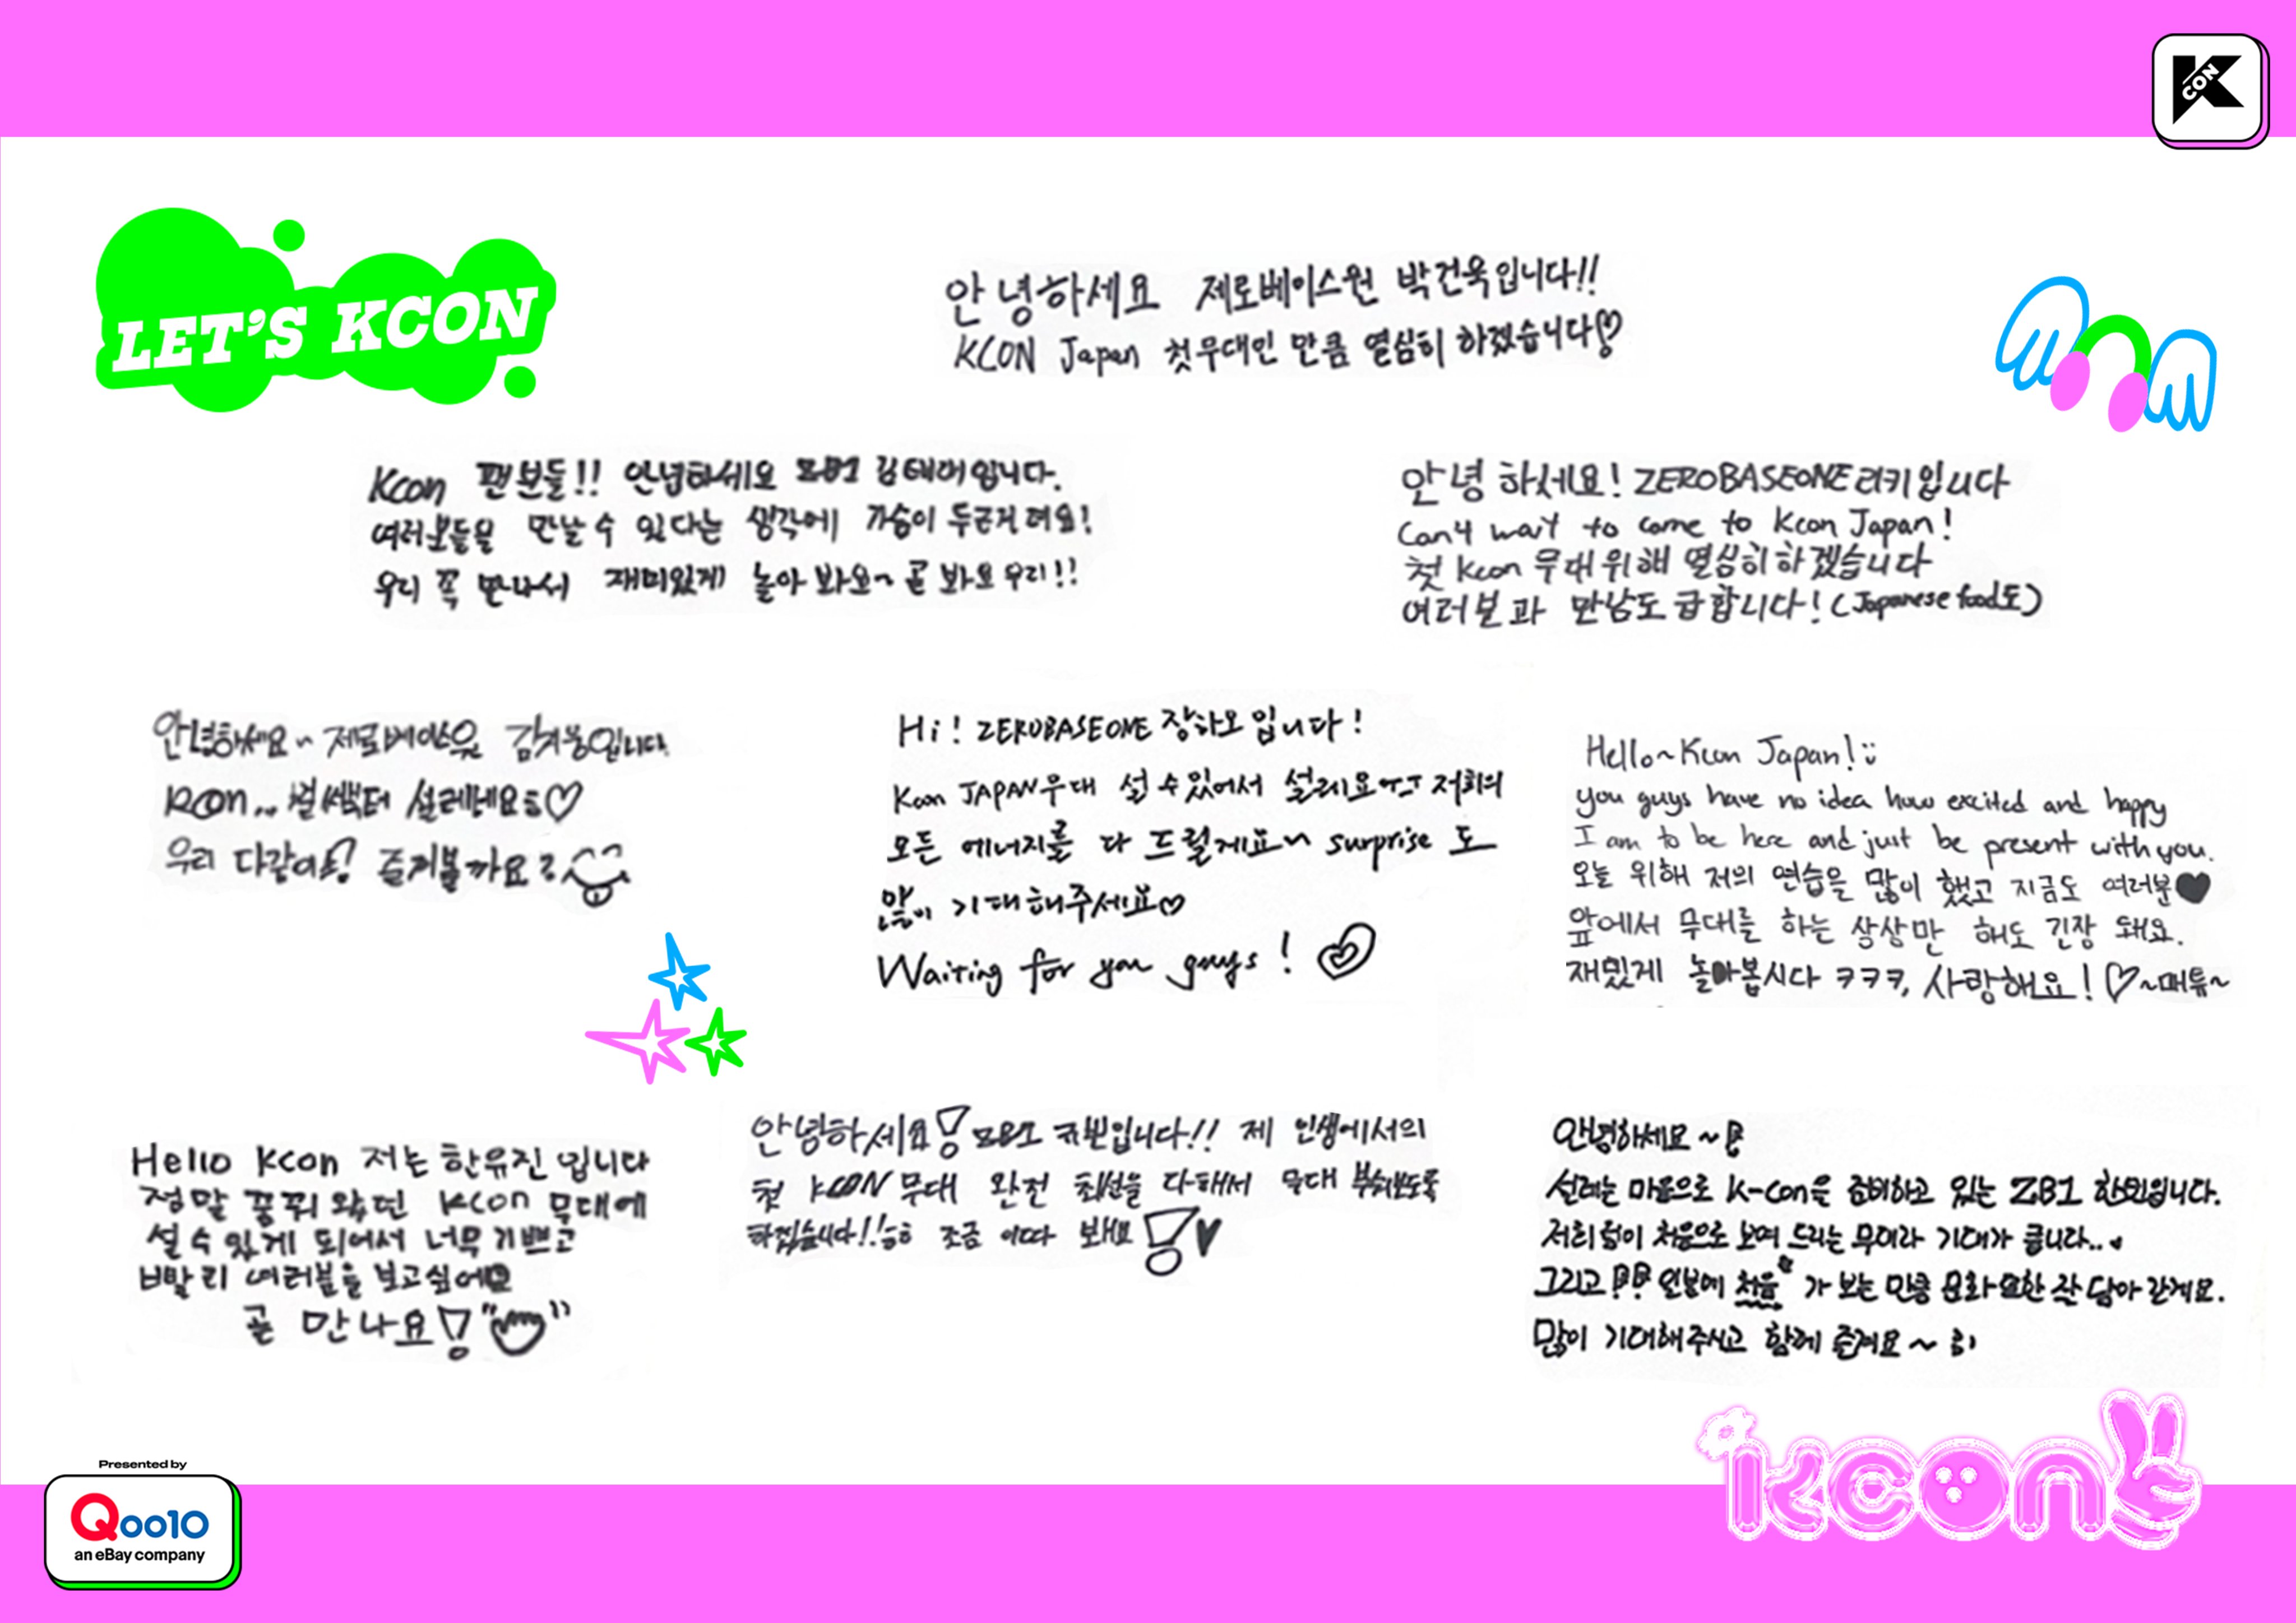 K CON
LET'S KCON
안녕하세요 제로베이스원 박건욱입니다!!
KCON Japan 첫무대인 만큼 열심히 하겠습니다♡
Kcon 팬분들!! 안녕하세요 ZB1 김태래입니다.
여러분들을 만날 수 있다는 생각에 가슴이 두근거려요!
우리 꼭 만나서 재미있게 놀아 봐요~ 곧 봐요 우리!!
안녕하세요! ZEROBASEONE 리키입니다
Can't wait to come to Kcon Japan!
첫 Kcon 무대위해 열심히하겠습니다
여러분과 만남도 급합니다! (Japanese food도)
안녕하세요~ 제로베이스원 김지웅입니다.
Kcon... 벌써부터 설레네요ㅎ♡
우리 다같이 즐겨볼까요?
Hi! ZEROBASEONE 장하오입니다!
Kcon JAPAN무대 설 수있어서 설레요ㅜㅜ 저희의
모든 에너지를 다 드릴게요~ surprise 도
많이 기대해주세요♡
Waiting for you guys!
Hello~Kcon Japan! :)
you guys have no idea how excited and happy
I am to be here and just be present with you.
오늘 위해 저의 연습을 많이 했고 지금도 여러분♥
앞에서 무대를 하는 상상만 해도 긴장 돼요.
재밌게 놀아봅시다 ㅋㅋㅋ, 사랑해요! ♡~매튜~
Hello Kcon 저는 한유진 입니다
정말 꿈꿔 왔던 Kcon 무대에
설 수 있게 되어서 너무 기쁘고
빨리 여러분을 보고싶어요
곧 만나요!
안녕하세요! ZB1 규빈입니다!! 제 인생에서의
첫 KCON 무대 완전 최선을 다해서 무대 부숴보도록
하겠습니다!! 조금 이따 봬요!♥
안녕하세요~!
설레는 마음으로 K-con을 준비하고 있는 ZB1 한빈입니다.
저희 팀이 처음으로 보여 드리는 무대라 기대가 큽니다..
그리고!! 일본에 처음 가 보는 만큼 문화 또한 잘 담아 갈게요.
많이 기대해주시고 함께 즐겨요~ :)
Presented by
Qoo10
an eBay company
kcon